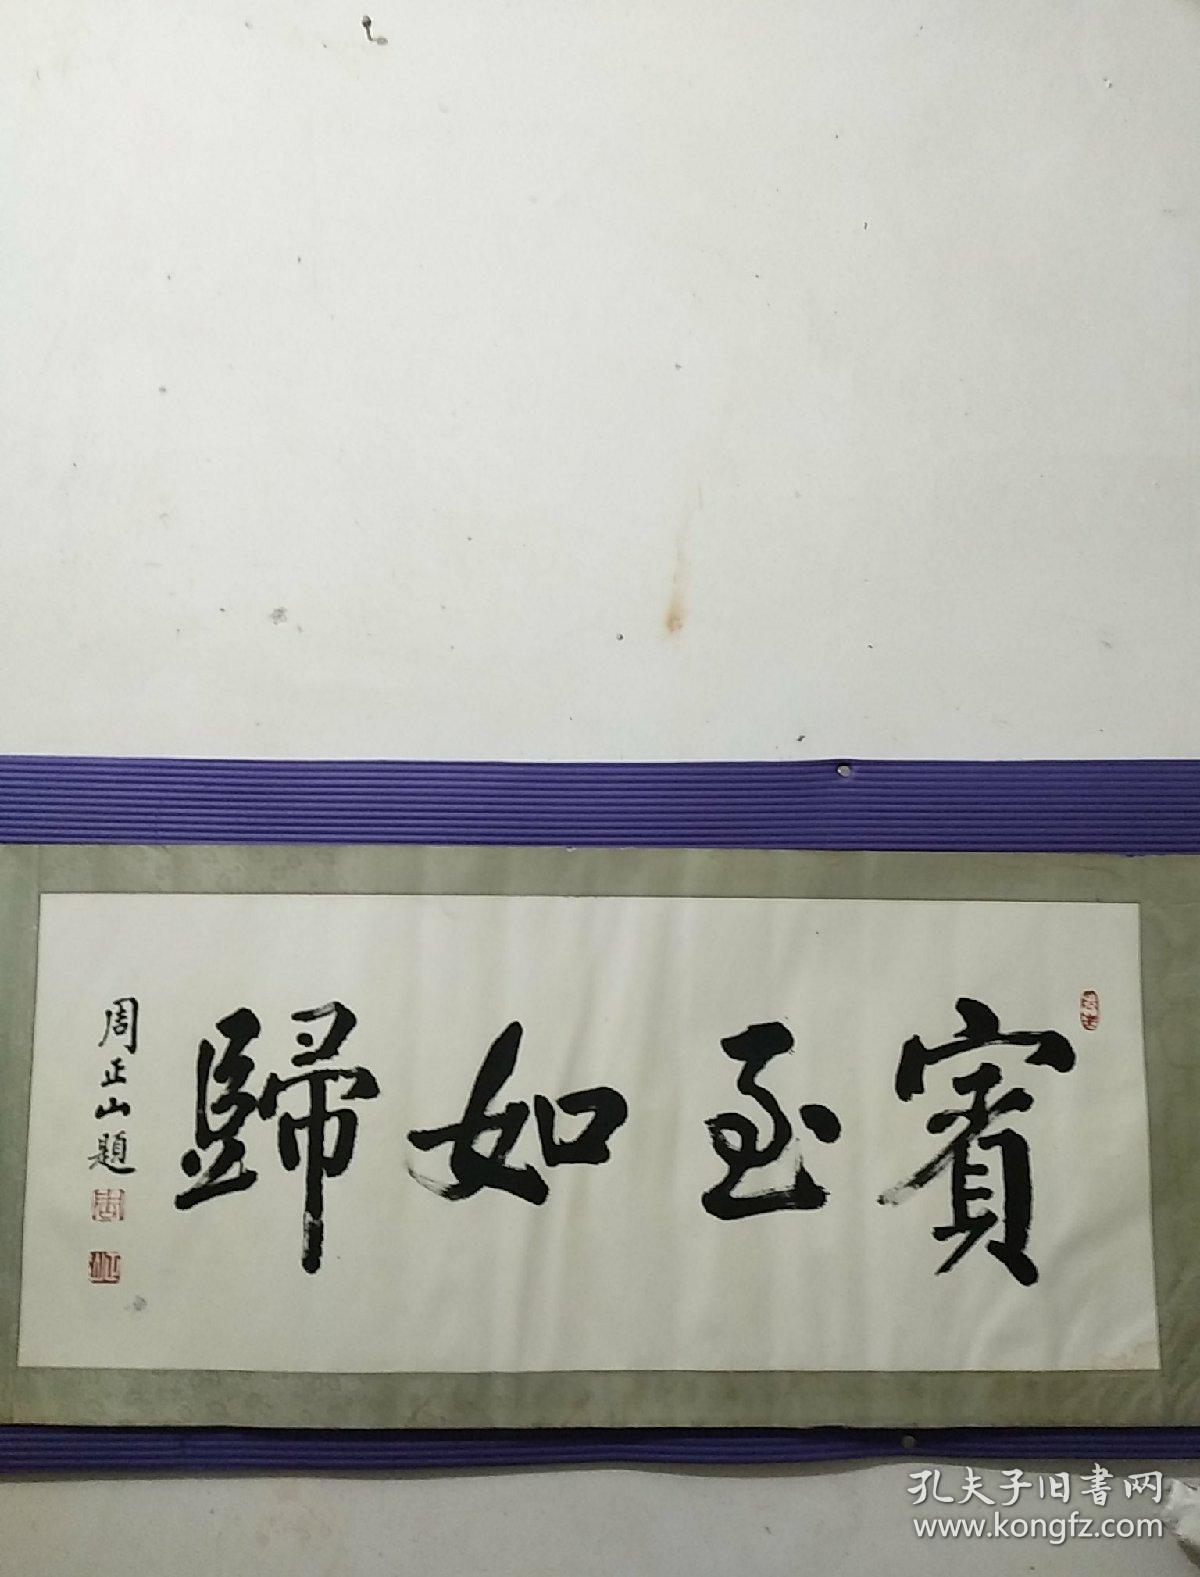 賓至如歸
周正山題
孔夫子旧書网
www.kongfz.com